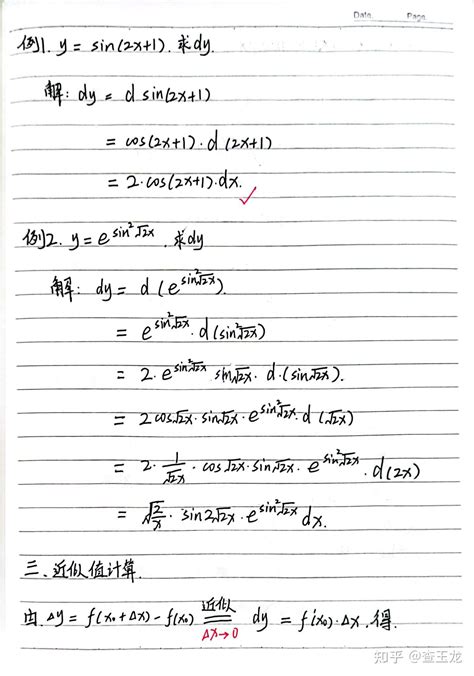 Date. Page.
例1. y = sin(2x+1). 求dy.
解: dy = d sin(2x+1)
= cos(2x+1)·d(2x+1)
= 2·cos(2x+1)·dx. ✓
例2. y = e^{sin²√2x}. 求dy
解: dy = d(e^{sin²√2x}).
= e^{sin²√2x}·d(sin²√2x)
= 2·e^{sin²√2x} sin√2x·d·(sin√2x).
= 2cos√2x·sin√2x·e^{sin²√2x}·d(√2x)
= 2·1/√2x·cos√2x·sin√2x·e^{sin²√2x}·d(2x)
= √(2/x)·sin2√2x·e^{sin²√2x}dx.
三、近似值计算.
由 Δy = f(x₀+Δx) - f(x₀) 近似 == Δx→0 dy = f'(x₀)·Δx, 得.
知乎 @查玉龙